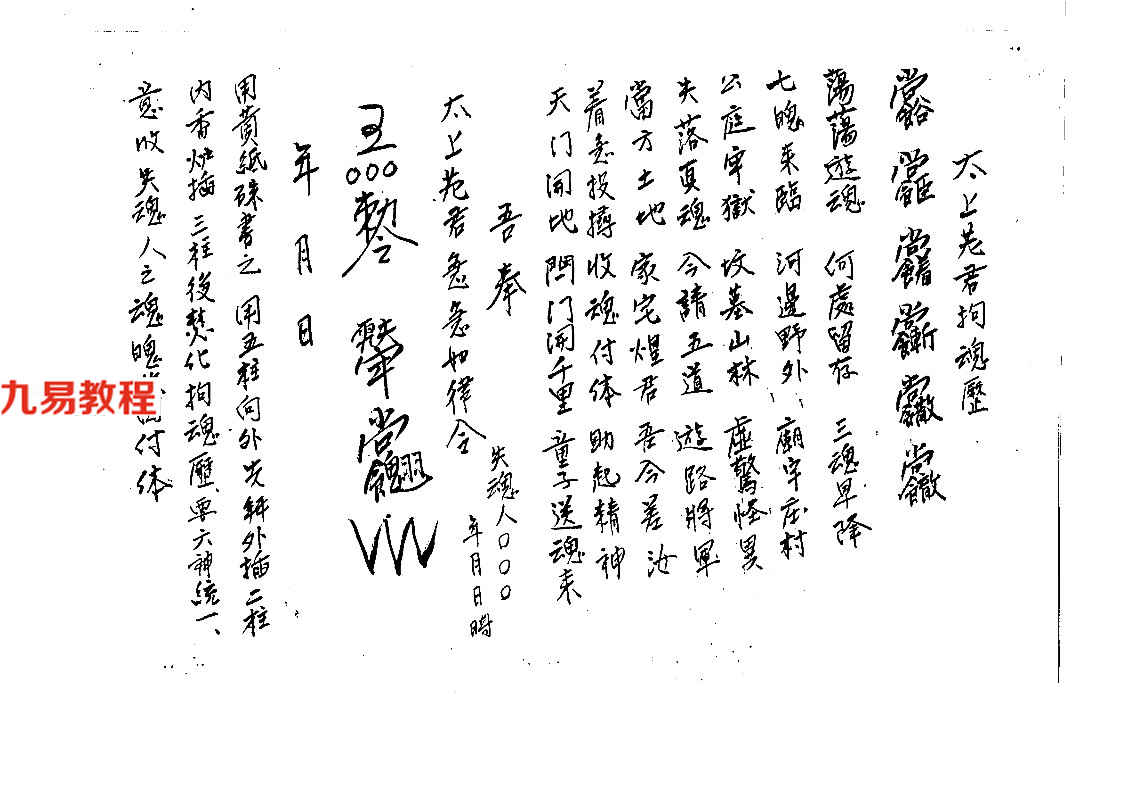 太上老君拘魂歷
蕩蕩遊魂 何處留存 三魂早降
七魄來臨 河邊野外 廟宇庄村
公庭牢獄 坟墓山林 虛驚怪異
失落真魂 今請五道 遊路將軍
當方土地 家宅灶君 吾今差汝
着急投撏收魂付体 助起精神
天门開地 門开千里 童子送魂来
吾奉
太上老君急急如律令
失魂人〇〇〇
年月日時
王〇〇〇勅令
年 月 日
用黃紙硃書之 用五柱向外 先解外插二柱
內香炉插三柱後焚化拘魂歷、要六神統一、
意收失魂人之魂魄 付体
九易教程